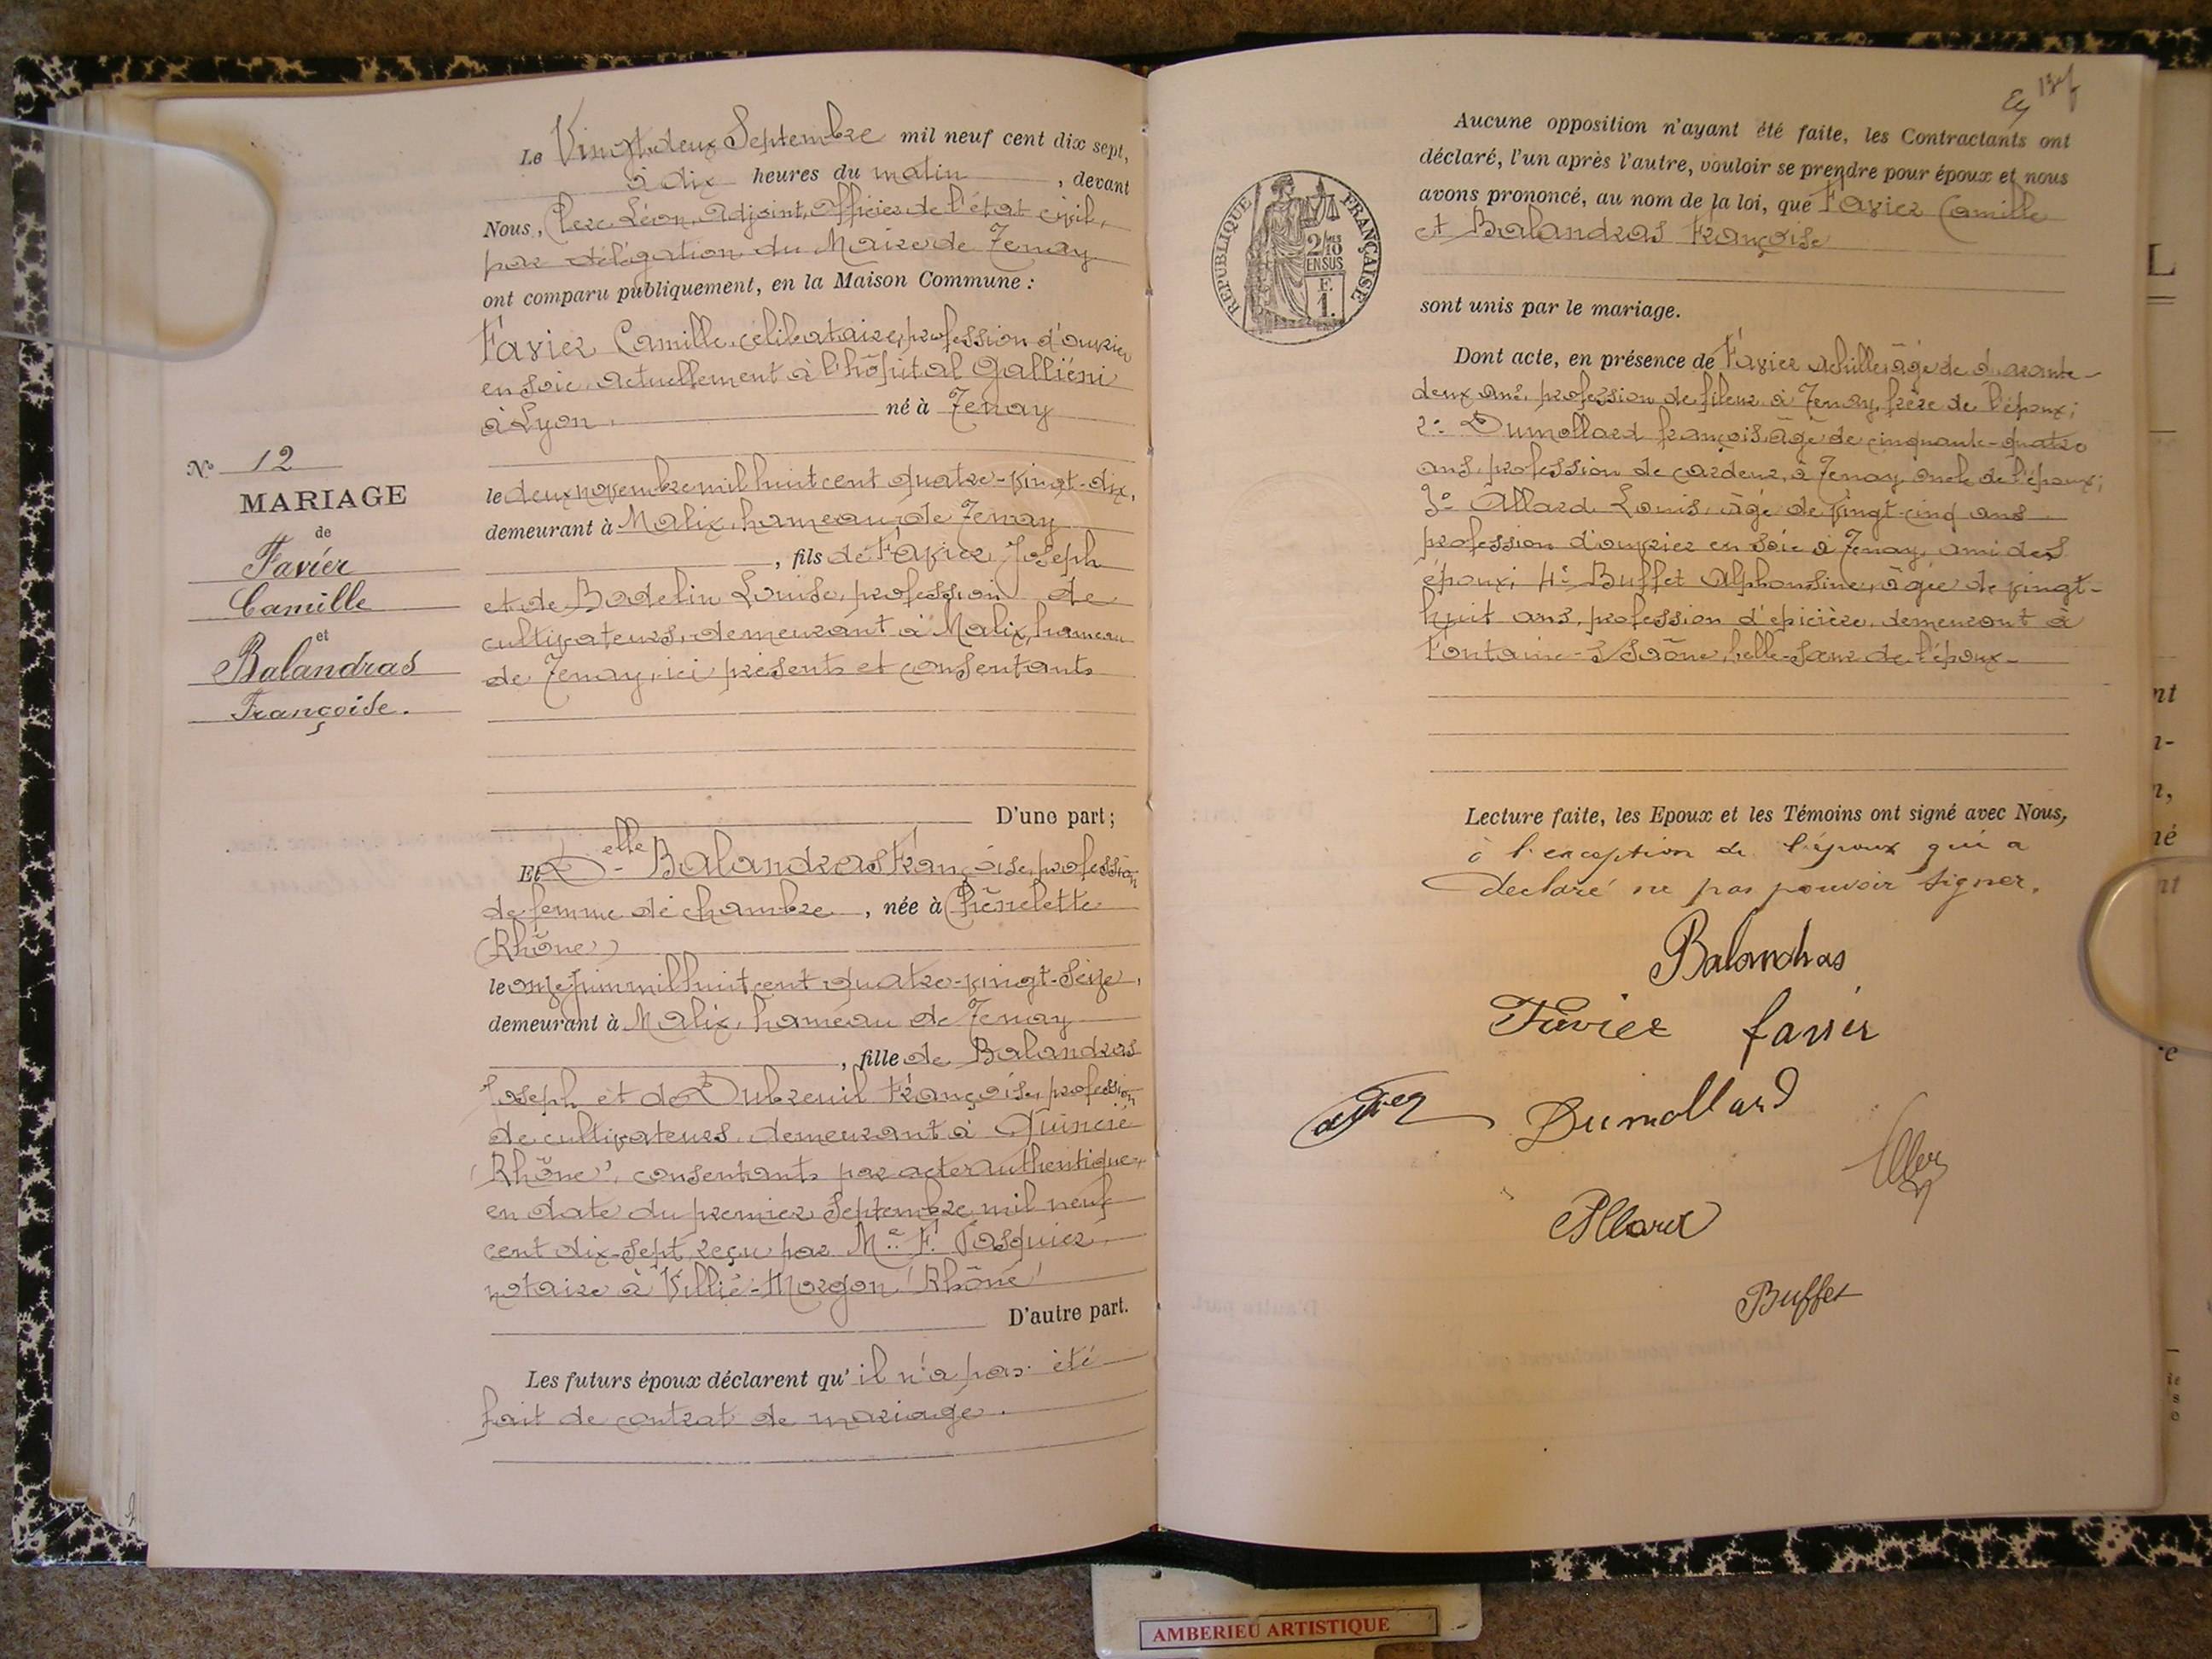 Le Vingt-deux Septembre mil neuf cent dix sept,
à dix heures du matin, devant
Nous, Clerc Léon, Adjoint, Officier de l'état civil,
par délégation du Maire de Tenay
ont comparu publiquement, en la Maison Commune :
Favier Camille, célibataire, profession d'ouvrier
en soie, actuellement à l'hôpital Galliéni
à Lyon né à Tenay
le deux novembre mil huit cent quatre-vingt-dix,
demeurant à Malix, hameau de Tenay
, fils de Favier Joseph
et de Bodelin Louise, profession de
cultivateurs, demeurant à Malix, hameau
de Tenay, ici présents et consentants
D'une part;
Et Delle Balandras Françoise, profession
de femme de chambre, née à Chênelette
(Rhône)
le onze juin mil huit cent quatre-vingt-seize,
demeurant à Malix, hameau de Tenay
, fille de Balandras
Joseph et de Dubreuil Françoise, profession
de cultivateurs, demeurant à Quincié
(Rhône), consentants par acte authentique
en date du premier Septembre mil neuf
cent dix-sept, reçu par Me F. Pasquier
notaire à Villié-Morgon (Rhône)
D'autre part.
Les futurs époux déclarent qu'il n'a pas été
fait de contrat de mariage.
No 12
MARIAGE
de
Favier
Camille
et
Balandras
Françoise.
Aucune opposition n'ayant été faite, les Contractants ont
déclaré, l'un après l'autre, vouloir se prendre pour époux et nous
avons prononcé, au nom de la loi, que Favier Camille
et Balandras Françoise
sont unis par le mariage.
RÉPUBLIQUE FRANÇAISE
2/10
EN SUS
E.
1.
Dont acte, en présence de Favier Achille, âgé de quarante-
deux ans, profession de fileur à Tenay, frère de l'époux;
2o Dumollard François, âgé de cinquante-quatre
ans, profession de cardeur, à Tenay, oncle de l'époux;
3o Allard Louis, âgé de vingt-cinq ans
profession d'ouvrier en soie à Tenay, ami des
époux; 4o Buffet Alphonsine, âgée de vingt-
huit ans, profession d'épicière, demeurant à
Fontaine-s/Saône, belle-sœur de l'époux
Lecture faite, les Epoux et les Témoins ont signé avec Nous,
à l'exception de l'époux qui a
déclaré ne pas pouvoir signer.
Balandras
Favier favier
Dumollard
Allard
Buffet
AMBERIEU ARTISTIQUE